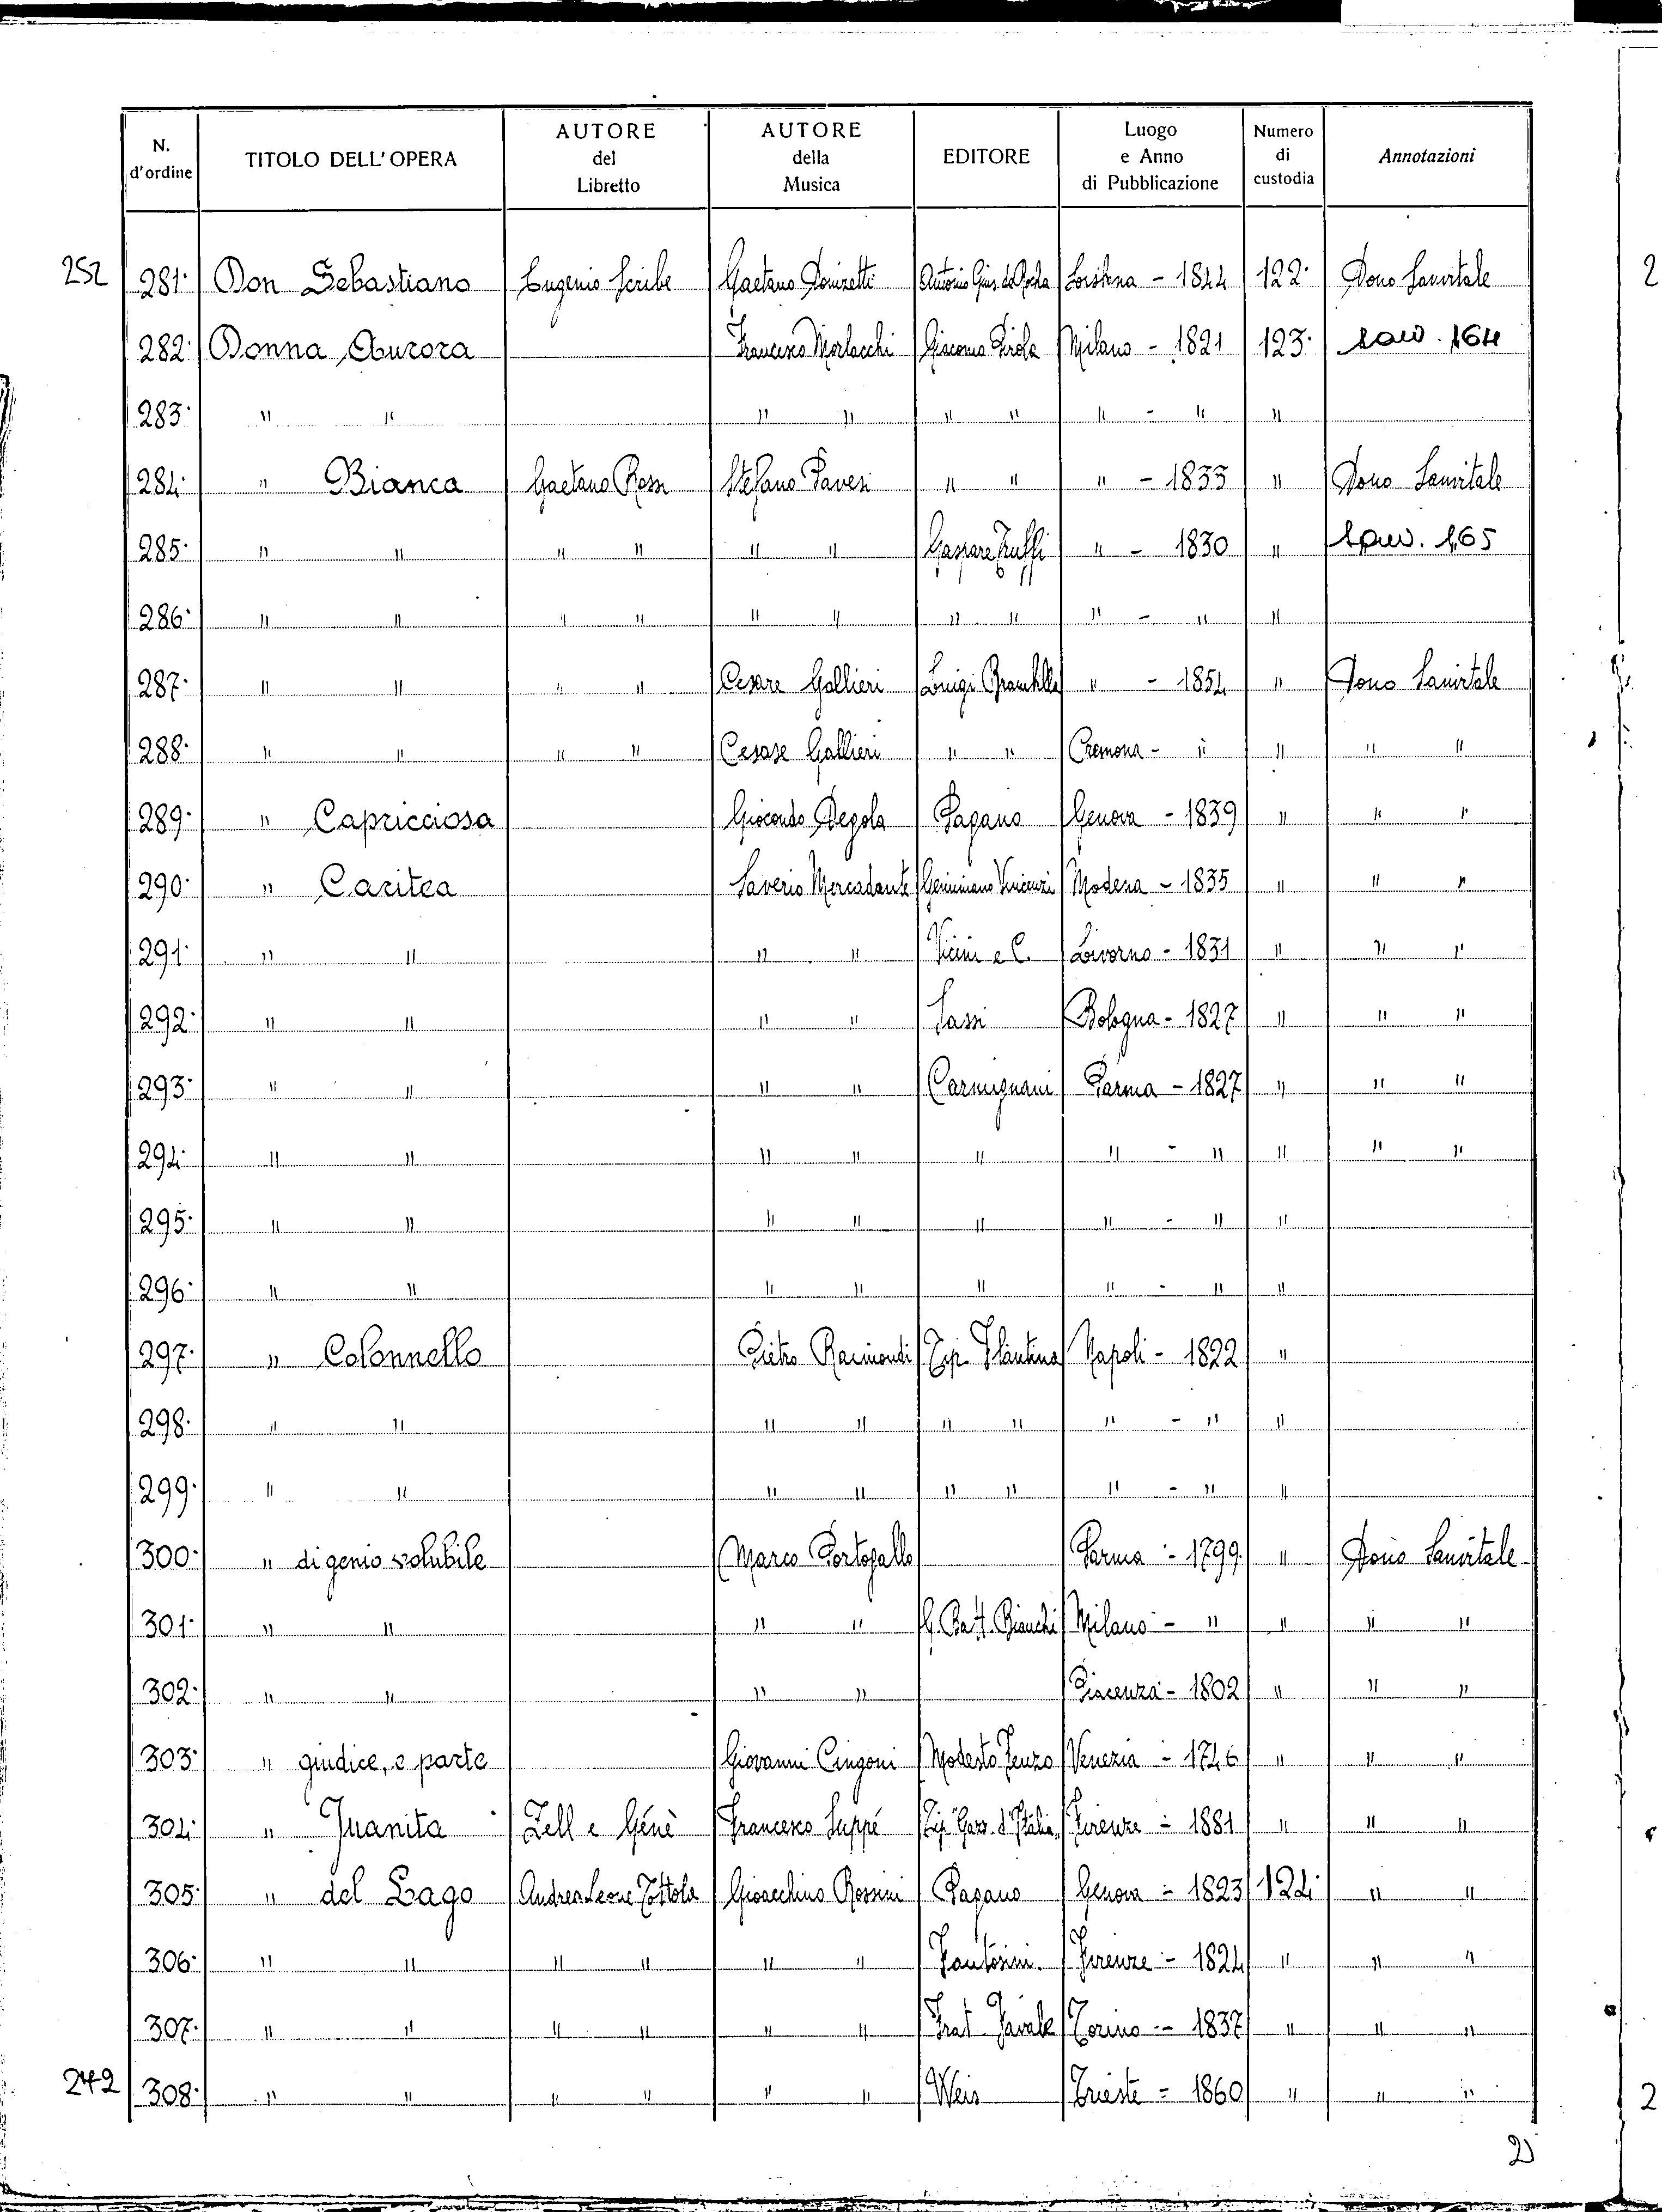 N. d'ordine TITOLO DELL'OPERA AUTORE del Libretto AUTORE della Musica EDITORE Luogo e Anno di Pubblicazione Numero di custodia Annotazioni
252 281· Don Sebastiano Eugenio Scribe Gaetano Donizetti Antonio Gius. da Rocha - 1844 122· Dono Sanvitale 2
282· Donna Aurora Francesco Morlacchi Giacomo Pirola Milano - 1821 123· 164
283· " " " " " " " - " "
284· " Bianca Gaetano Rossi Stefano Pavesi " " " - 1833 " Dono Sanvitale
285· " " " " " " Gaspare Truffi " - 1830 " 165
286· " " " " " " " " " - " "
287· " " " " Cesare Gallieri Luigi " - 1854 " Dono Sanvitale
288· " " " " Cesare Gallieri " " Cremona - " " " "
289· " Capricciosa Giocondo Degola Pagano Genova - 1839 " " "
290· " Caritea Saverio Mercadante Geminiano Vincenzi Modena - 1835 " " "
291· " " " " Vicini e C. Livorno - 1831 " " "
292· " " " " Sassi Bologna - 1827 " " "
293· " " " " Carmignani Parma - 1827 " " "
294· " " " " " " - " " " "
295· " " " " " " - " "
296· " " " " " " - " "
297· " Colonnello Pietro Raimondi Tip. Flautina Napoli - 1822 "
298· " " " " " " " - " "
299· " " " " " " " - " "
300· " di genio volubile Marco Portogallo Parma - 1799 " Dono Sanvitale
301· " " " " G. Batt. Bianchi Milano - " " " "
302· " " " " Piacenza - 1802 " " "
303· " giudice, e parte Giovanni Cingoni Modesto Fenzo Venezia - 1746 " " "
304· " Juanita Zell e Génè Francesco Suppé Tip. Gazz. d'Italia Firenze - 1881 " " "
305· " del Lago Andrea Leone Tottola Gioacchino Rossini Pagano Genova - 1823 124· " "
306· " " " " " " Fantosini. Firenze - 1824 " " "
307· " " " " " " Frat. Favale Torino - 1837 " " "
242 308· " " " " " " Weis Trieste - 1860 " " " 2